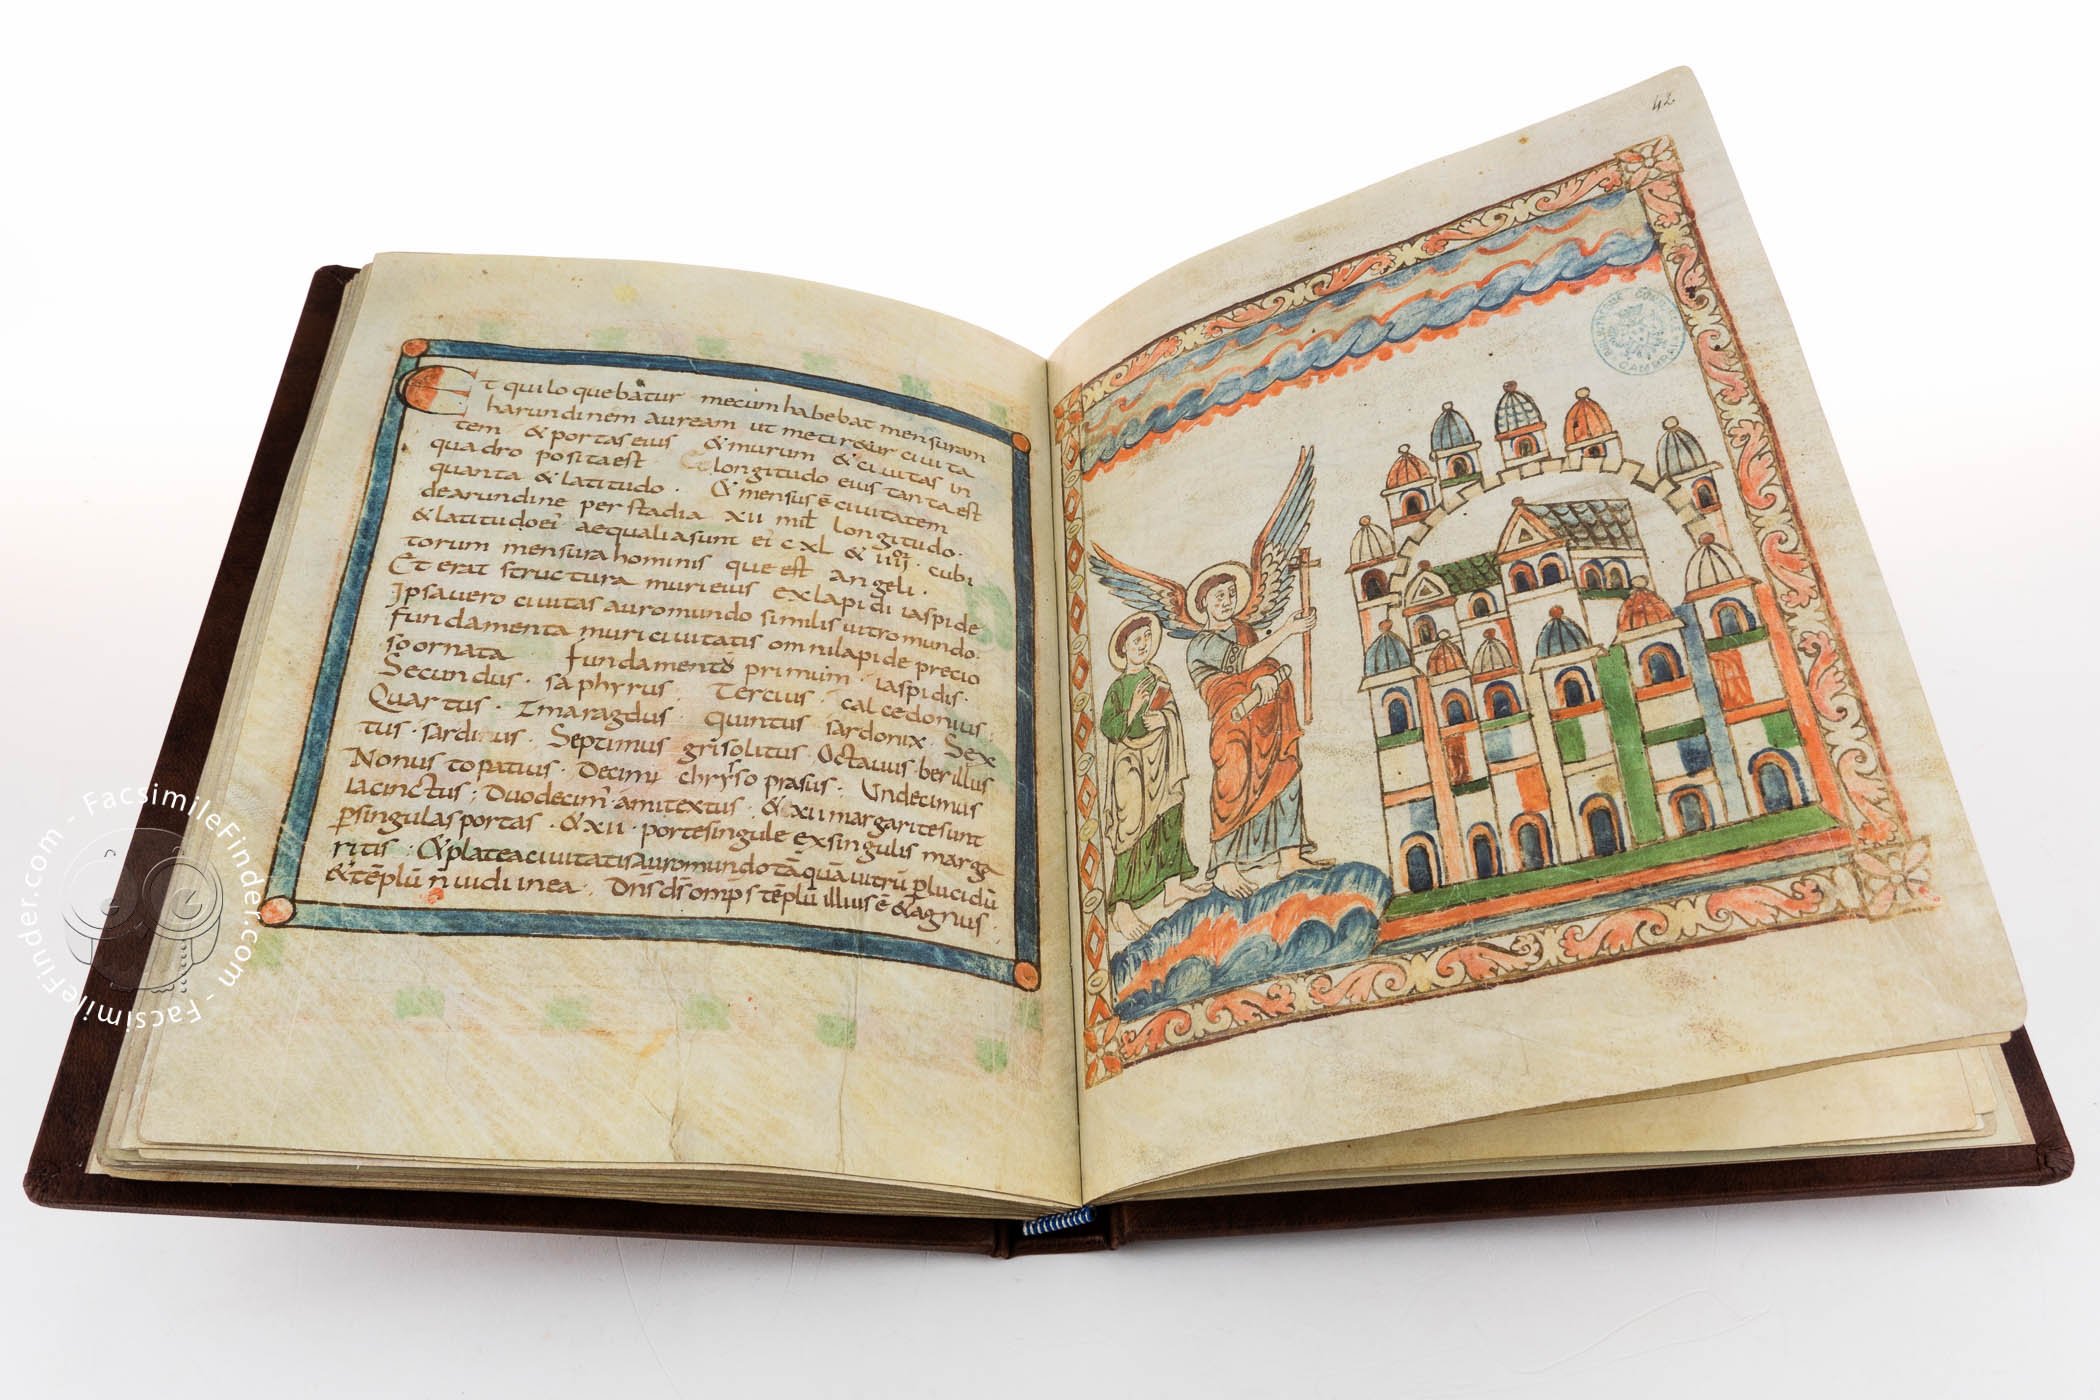 Et qui loquebatur mecum habebat mensuram
harundinem auream ut metiretur ciuita
tem & portas eius & murum & ciuitas in
quadro posita est Et longitudo eius tanta est
quanta & latitudo · & mensus ē ciuitatem
de arundine per stadia XII mil longitudo ·
& latitudo ei aequalia sunt ei c XL & IIII or · cubi
torum mensura hominis que est angeli ·
Et erat structura muri eius ex lapidi iaspide
Ipsa uero ciuitas auro mundo similis uitro mundo ·
fundamenta muri ciuitatis omni lapide precio
so ornata fundamentū primum · iaspidis ·
Secundus · saphyrus · Tercius · calcedonius ·
Quartus · Zmaragdus · Quintus sardonix · Sex
tus · sardinus · Septimus grisolitus · Octauus · berillus
Nonus topatius · Decimi chrysoprasus · Undecimus
Iacinctus ; Duodecim̄ · amitextus · & XII margarite sunt
p singulas portas · & XII · porte singule ex singulis marga
ritis ; & platea ciuitatis aurom mundo tā quā uitrū plucidū
& tēplū n̄ uidi in ea · Dn̄s d̄s omp̄s tēplū illius ē & agnus ·
42
BIBLIOTHEQUE COM
CAMBRAI
FacsimileFinder.com - FacsimileFinder.com - FacsimileFinder.com